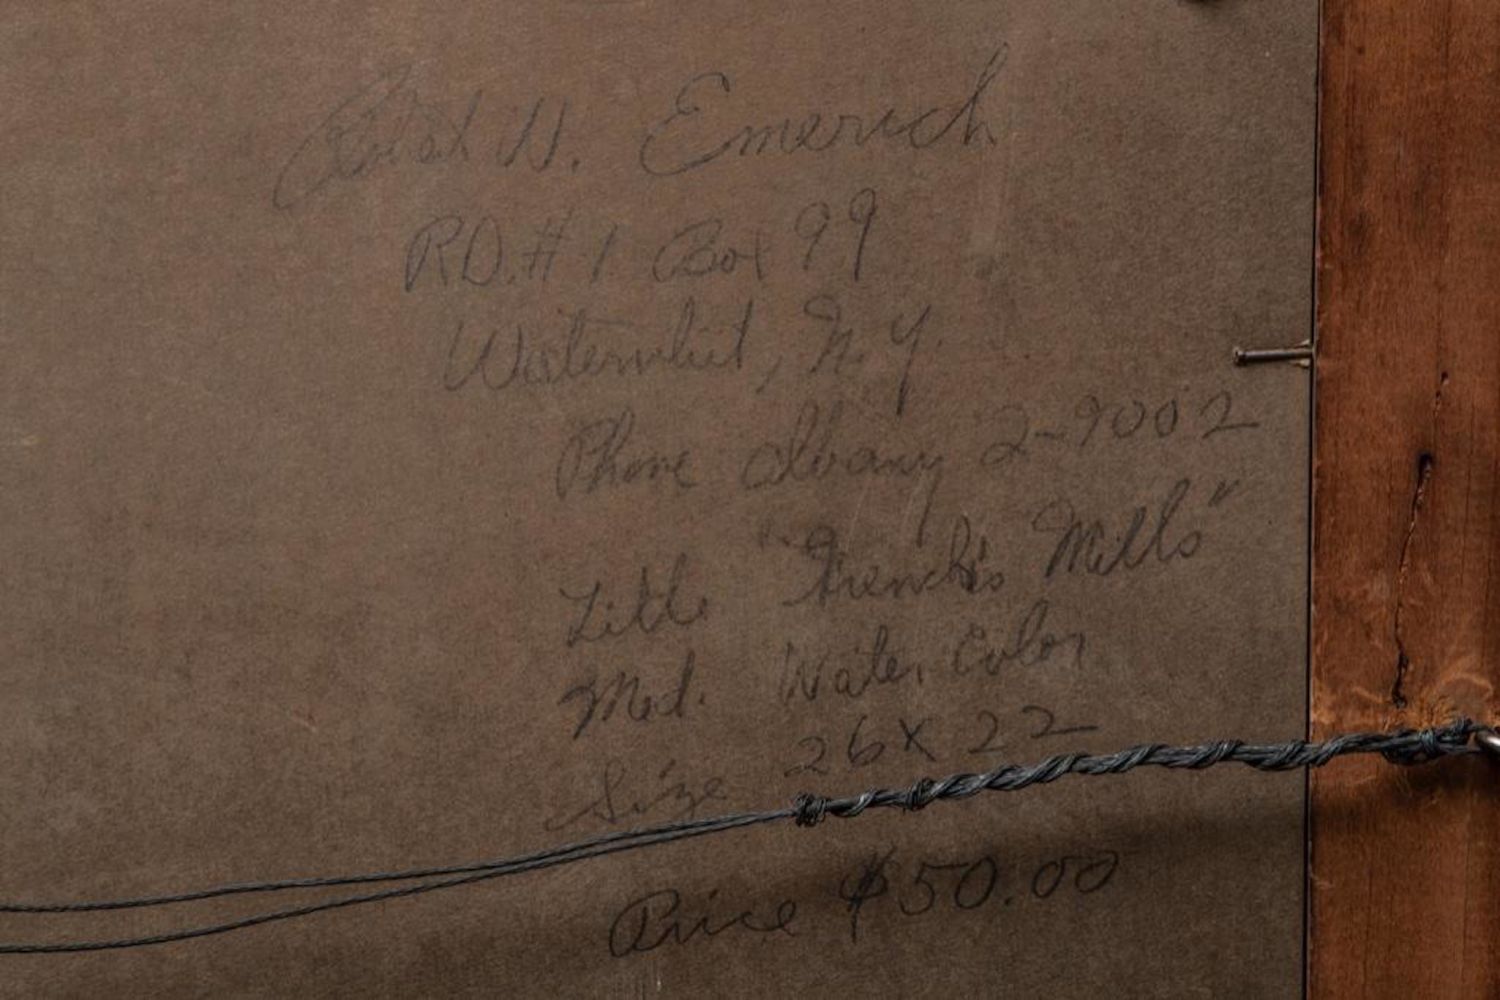 W. Emerich
RD. #1 Box 99
Watervliet, N.Y.
Phone Albany 2-9002
Title "French's Mills"
Med. Water Color
Size 26 x 22
Price $50.00